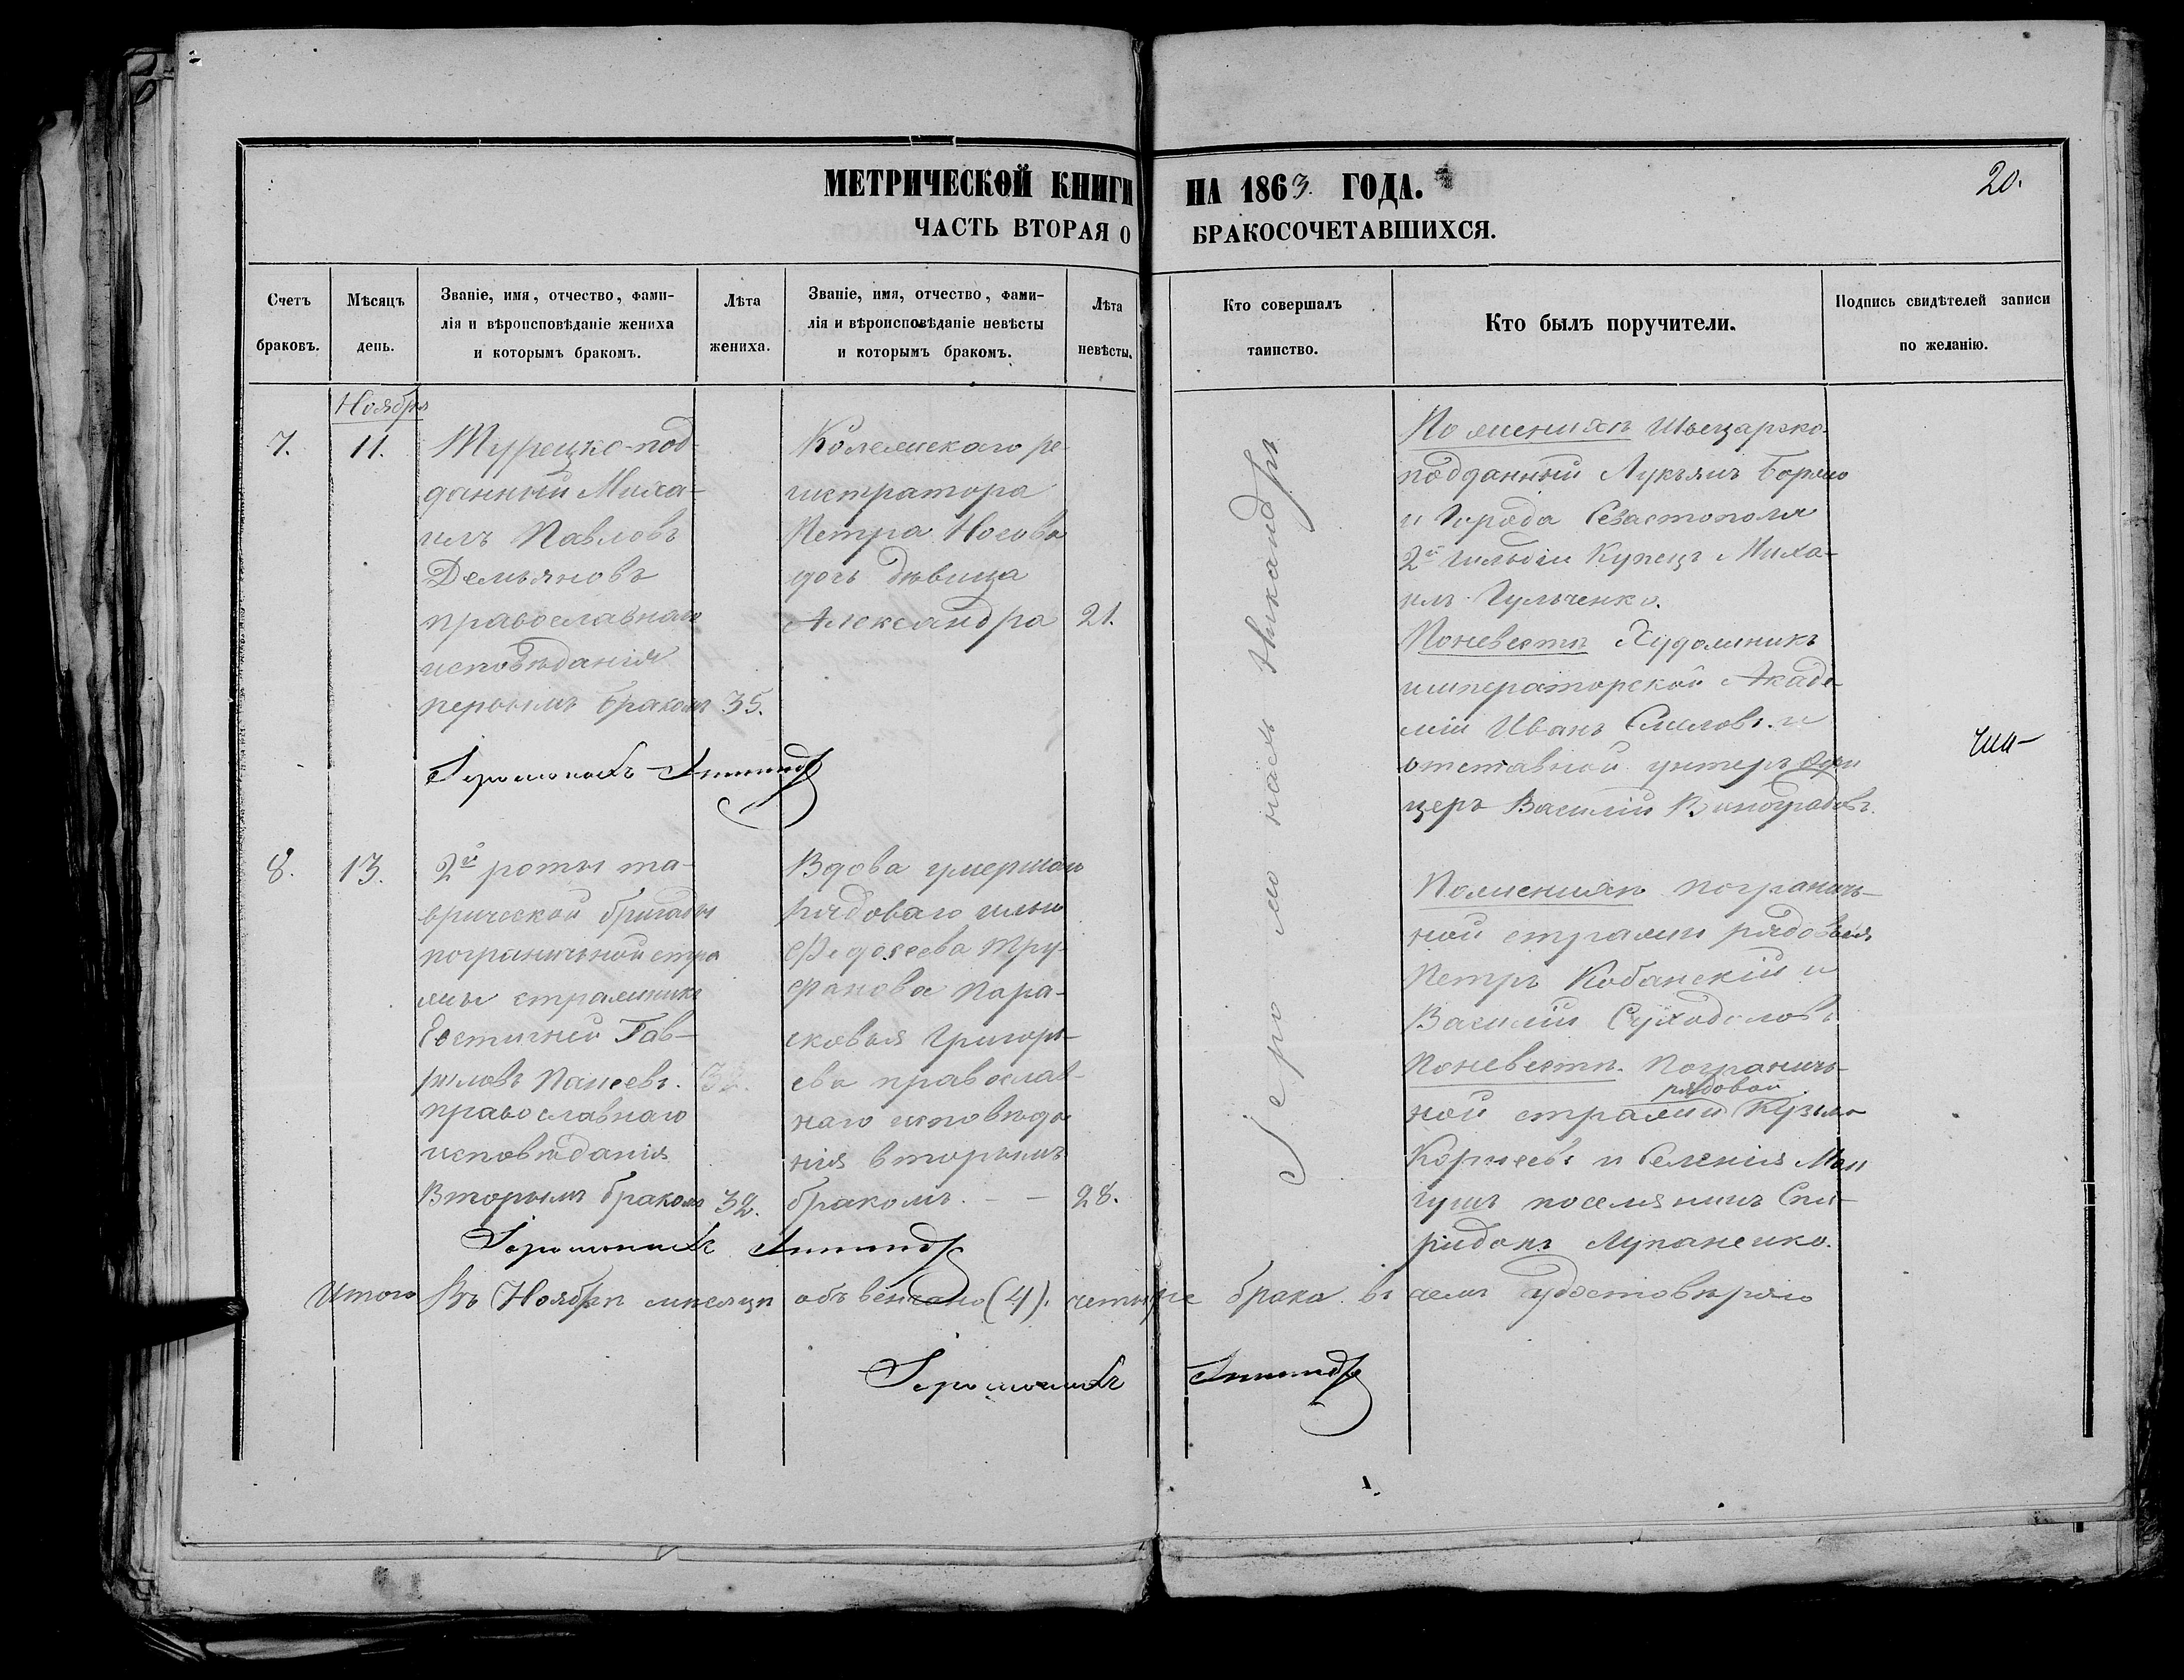 МЕТРИЧЕСКОЙ КНИГИ НА 1863. ГОДА.
20.
ЧАСТЬ ВТОРАЯ О БРАКОСОЧЕТАВШИХСЯ.
Счетъ браковъ.
Мѣсяцъ день.
Званіе, имя, отчество, фами-
лія и вѣроисповѣданіе жениха
и которымъ бракомъ.
Лѣта жениха.
Званіе, имя, отчество, фами-
лія и вѣроисповѣданіе невѣсты
и которымъ бракомъ.
Лѣта невѣсты.
Кто совершалъ таинство.
Кто былъ поручители.
Подпись свидѣтелей записи
по желанію.
Ноября
7.
11.
Турецко-под-
данный Миха-
илъ Павловъ
Демьяновъ
православнаго
исповѣданія
первымъ бракомъ
35.
Колежскаго ре-
гистратора
Петра Носова
дочь дѣвица
Александра
21.
По женихѣ Швецарско-
подданный Лукьянъ
и Города Севастополя
2й гильдіи Купецъ Миха-
илъ Гульченко.
По невестѣ Художникъ
императорской Акаде-
міи Иванъ и
отставной унтеръ офи
церъ Василій Виноградовъ.
Іеромонахъ
8.
13.
2й роты та-
врической бригады
пограничной стра
жи стражникъ
Евстигней Гав-
риловъ Панеевъ.
православнаго
исповѣданія
Вторымъ бракомъ
32.
Вдова умершаго
рядоваго Ильи
Федосеева Тру-
фанова Пара-
сковья Григорь-
ева православ-
наго исповѣда
нія вторымъ
бракомъ. – –
28.
По женихѣ погранич-
ной стражи рядовыя
Петръ Кобанскій и
Василій Суходоловъ
По невестѣ. Погранич-
рядовой
ной стражи Кузьма
Корнеевъ и Селенія Ман
гушъ поселянинъ Спи-
ридонъ Лупаненко.
Іеромонахъ
Іеромонахъ
Итого Въ Ноябрѣ мѣсяцѣ объвенчано (4). четыре брака. въ чемъ удостовѣряю
Іеромонахъ